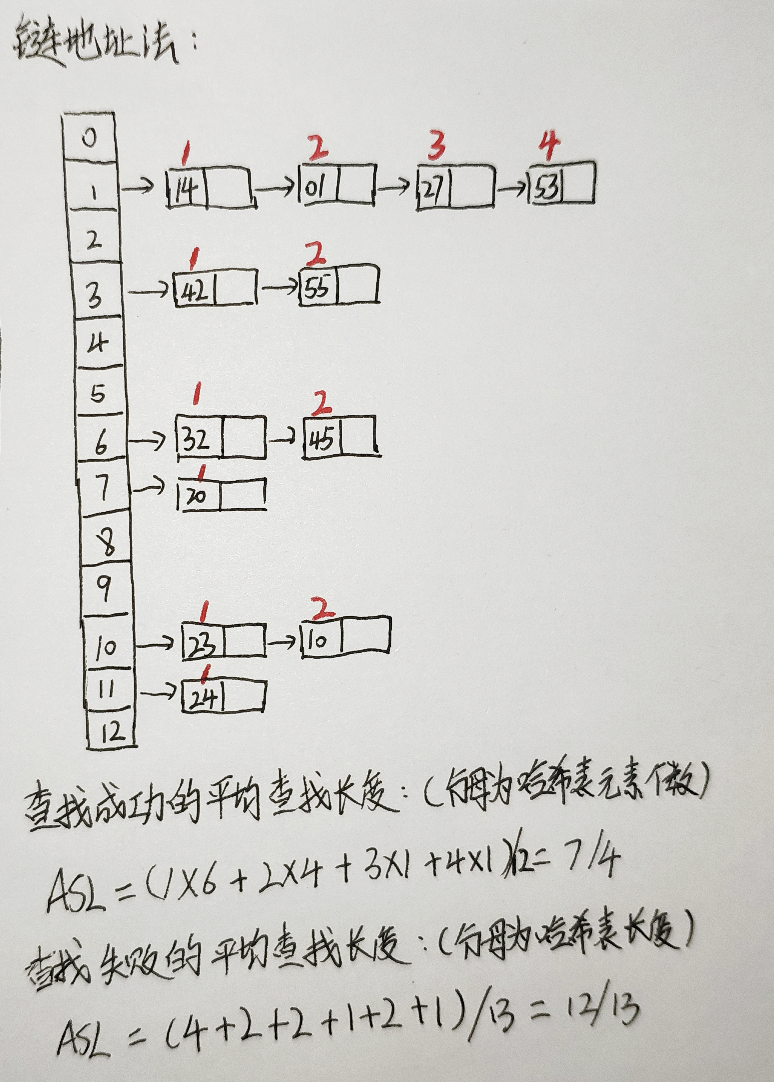 链地址法:
0
1 2 3 4
1 → 14 → 01 → 27 → 53
2
1 2
3 → 42 → 55
4
5
1 2
6 → 32 → 45
1
7 → 20
8
9
1 2
10 → 23 → 10
1
11 → 24
12
查找成功的平均查找长度:(分母为哈希表元素个数)
ASL = (1×6 + 2×4 + 3×1 + 4×1)/12 = 7/4
查找失败的平均查找长度:(分母为哈希表长度)
ASL = (4+2+2+1+2+1)/13 = 12/13